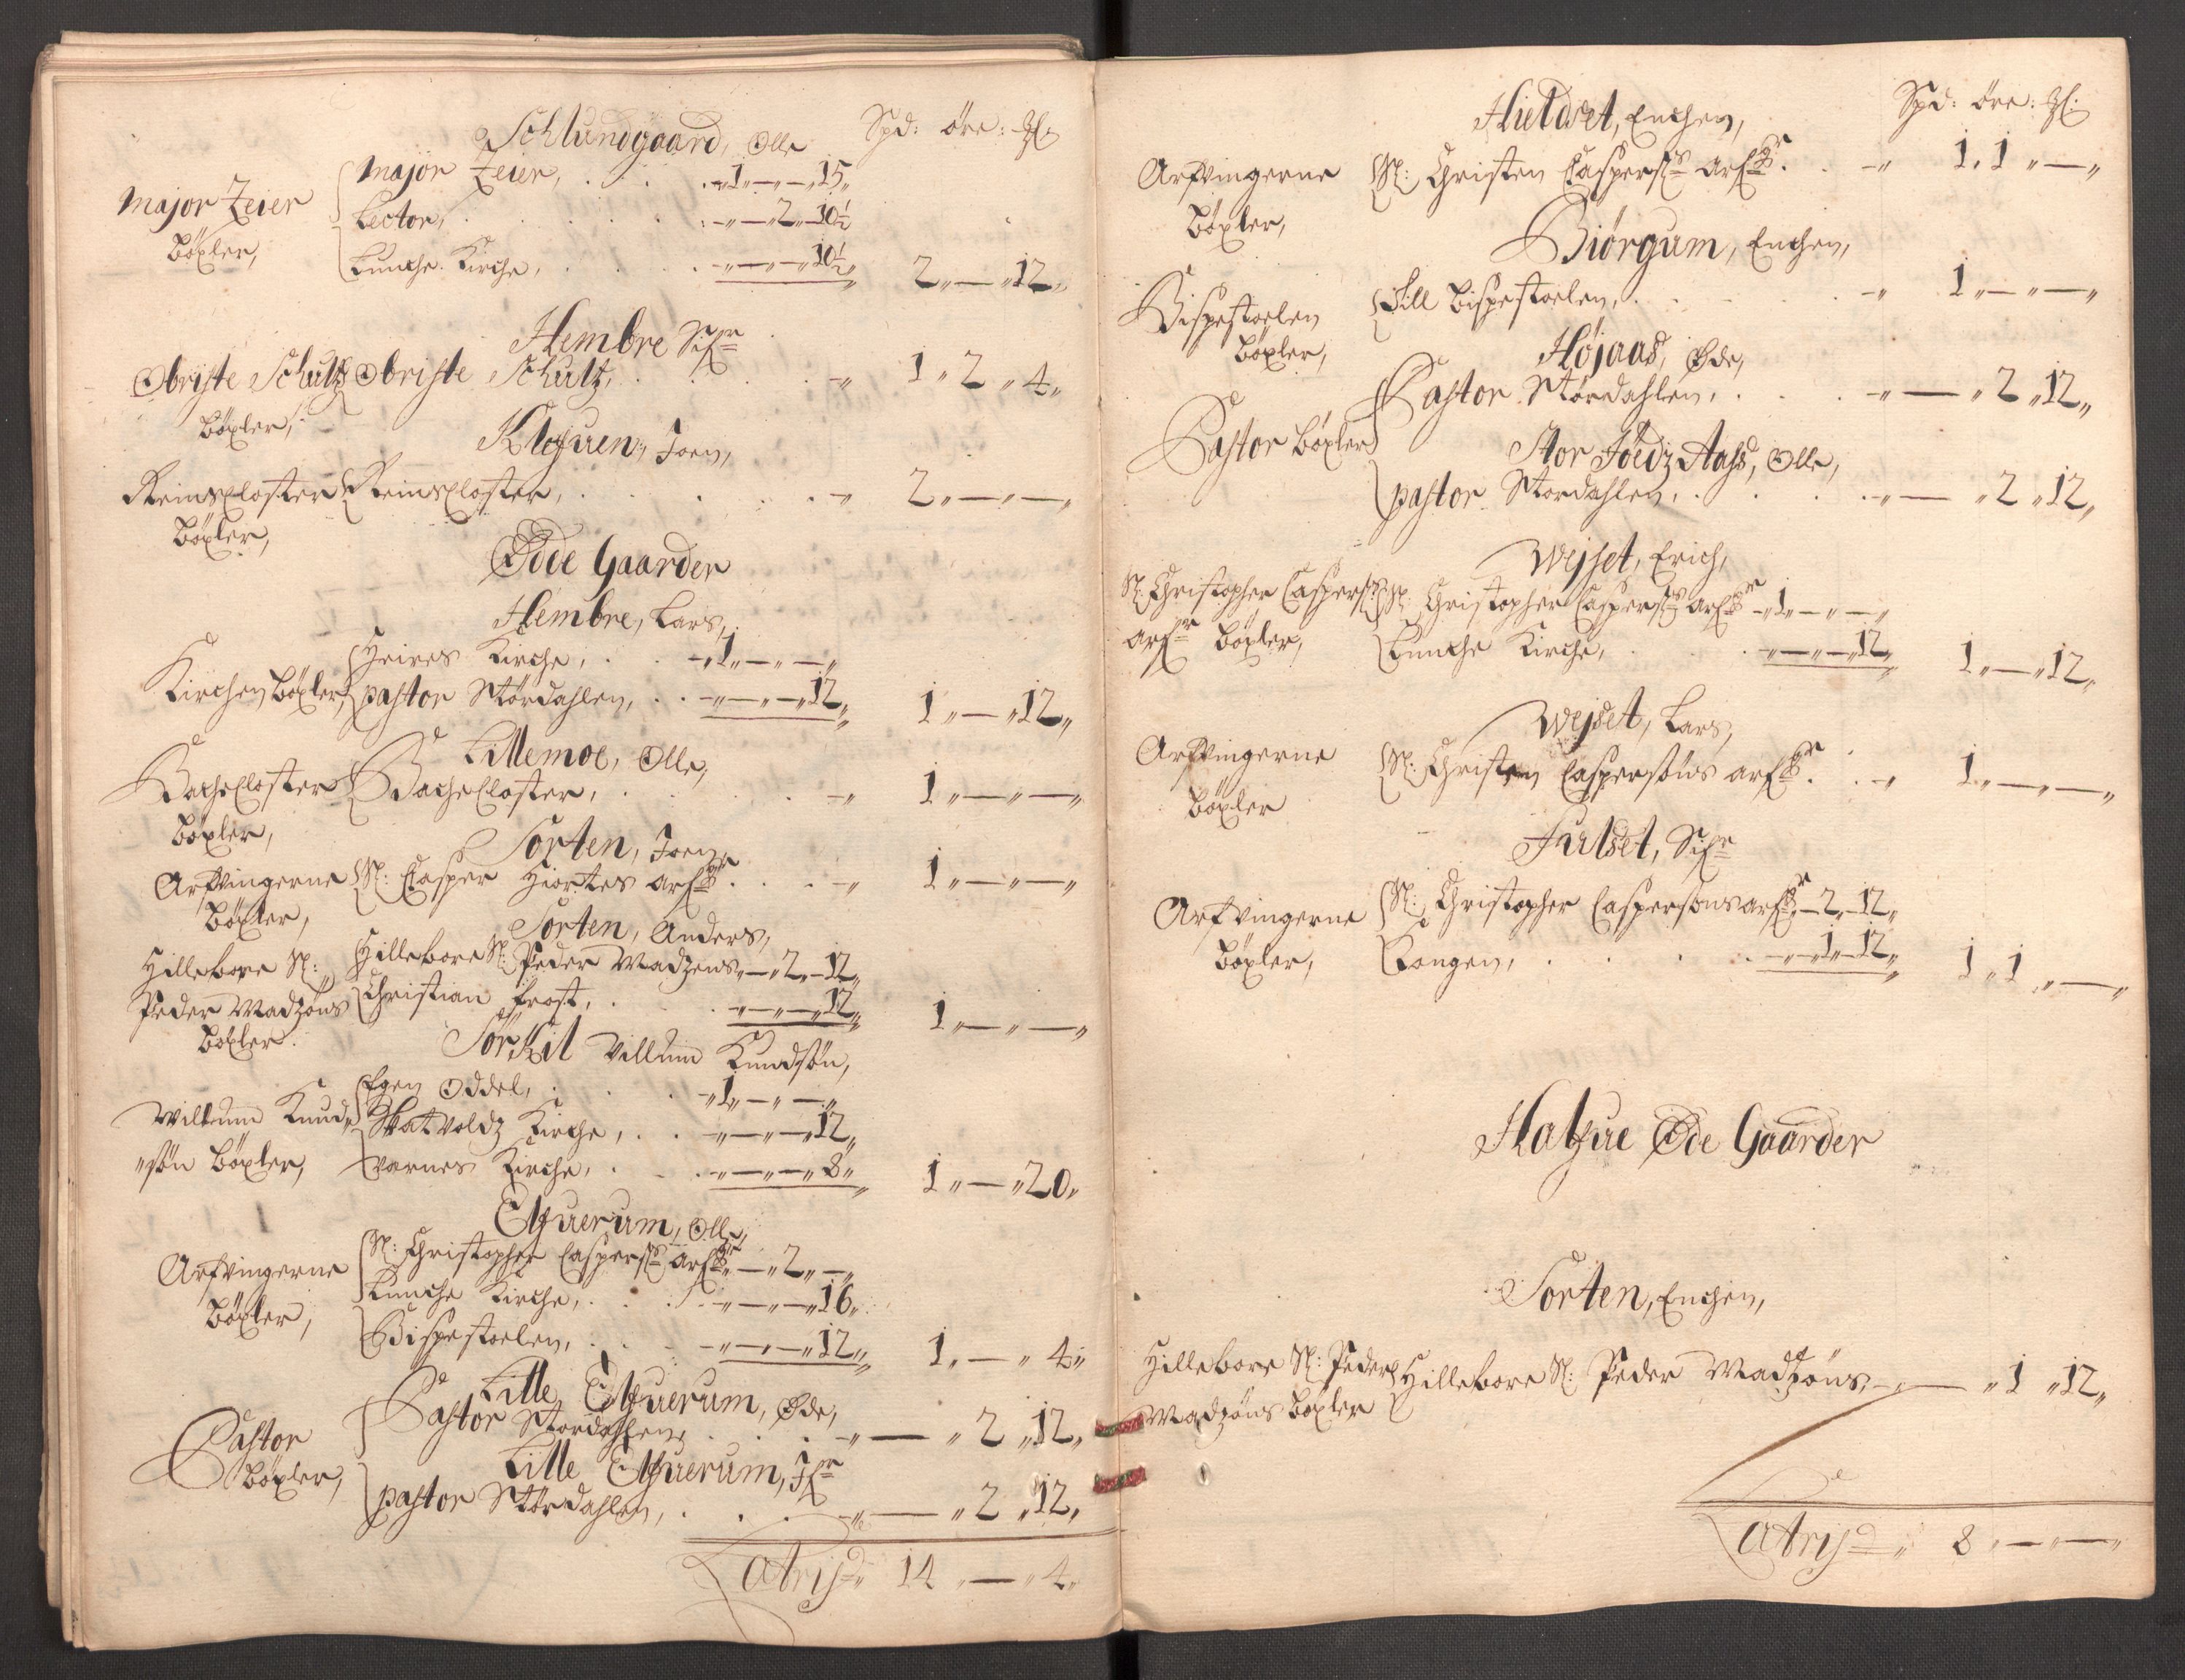 Schlundgaard, Olle Spd: öre: 
Major Zeier Böxler, Major Zeier, . . . „1„—„—„15„
Lector, . . . . „—„2„10½
Lunche Kirche, . . . „—„—„10½„ 2„—„12„
Hembre Sifr
Obriste Schultz Böxler, Obriste Schultz, . . . „ 1„2„4„
Klefuen, Joen,
Reinscloster Böxler, Reinscloster, . . . . „ 2„—„—„
Øde Gaarder
Hembre, Lars,
Kirchen Böxler, Kirche, . . „1„—„—„
Pastor Størdahlen, . . „—„—„12„ 1„—„12„
Lillemoe, Olle,
Bachecloster Böxler, Bachecloster, . . . „ 1„—„—„
Sorten, Joen,
Arfvingerne Böxler, Sl: Casper Hiortes arfr . . . „ 1„—„—„
Sorten, Anders,
Hillebore Sl: Peder Madzøns Böxler. Hillebore Sl: Peder Madzens „—„2„12„
Christian Frost, . „—„—„12„ 1„—„—„
Sør Kil Villum Knudsøn,
Willum Knud„ „søn Böxler, Egen Oddel, . . „1„—„—„
Skatvoldz Kirche, . . „—„—„12„
Varnes Kirche, . . „—„—„8„ 1„—„20„
Elfuerum, Olle,
Arfvingerne Böxler, Sl: Christopher Caspersns arfr „—„2„—„
Lunche Kirche, . . . „—„—„16„
Bispestoelen, . . „—„—„12„ 1„—„4„
Lille Elfuerum, Øde,
Pastor Böxler, Pastor Størdahlen, . . „—„2„12„
Lille Elfuerum, Ifr
Pastor Størdahlen, . . . „—„2„12„
latrisd„ 14„—„4„
Hieldset, Enchen, Spd: öre: 
Arfvingerne Böxler, Sl: Christen Caspersns arfr . . „ 1„1„—„
Biørgum, Enchen,
Bispestoelen Böxler, Till Bispestoelen, . . . . „ 1„—„—„
Højaas, Øde,
Pastor Böxler Pastor Størdahlen, . . . „—„2„12„
Stor Aass, Olle,
Pastor Stordahlen, . . . „—„2„12„
Wejset, Erich,
Sl: Christopher Caspersns arfr Böxler, Sl: Christopher Caspersns arfr „1„—„—„
Lunche Kirche, . . „—„—„12„ 1„—„12„
Wejset, Lars,
Arfvingerne Böxler Sl: Christen Caspersøns arfr . . „ 1„—„—„
Fulset, Sifr
Arfvingerne Böxler, Sl: Christopher Caspersøns arfr „—„2„12„
Kongen, . . . „—„1„12„ 1„1„—„
Halfue Øde Gaarder
Sorten, Enchen,
Hillebore Sl: Peder Madzøns Böxler Hillebore Sl: Peder Madzøns „—„1„12„
latrisd„ 8„—„—„